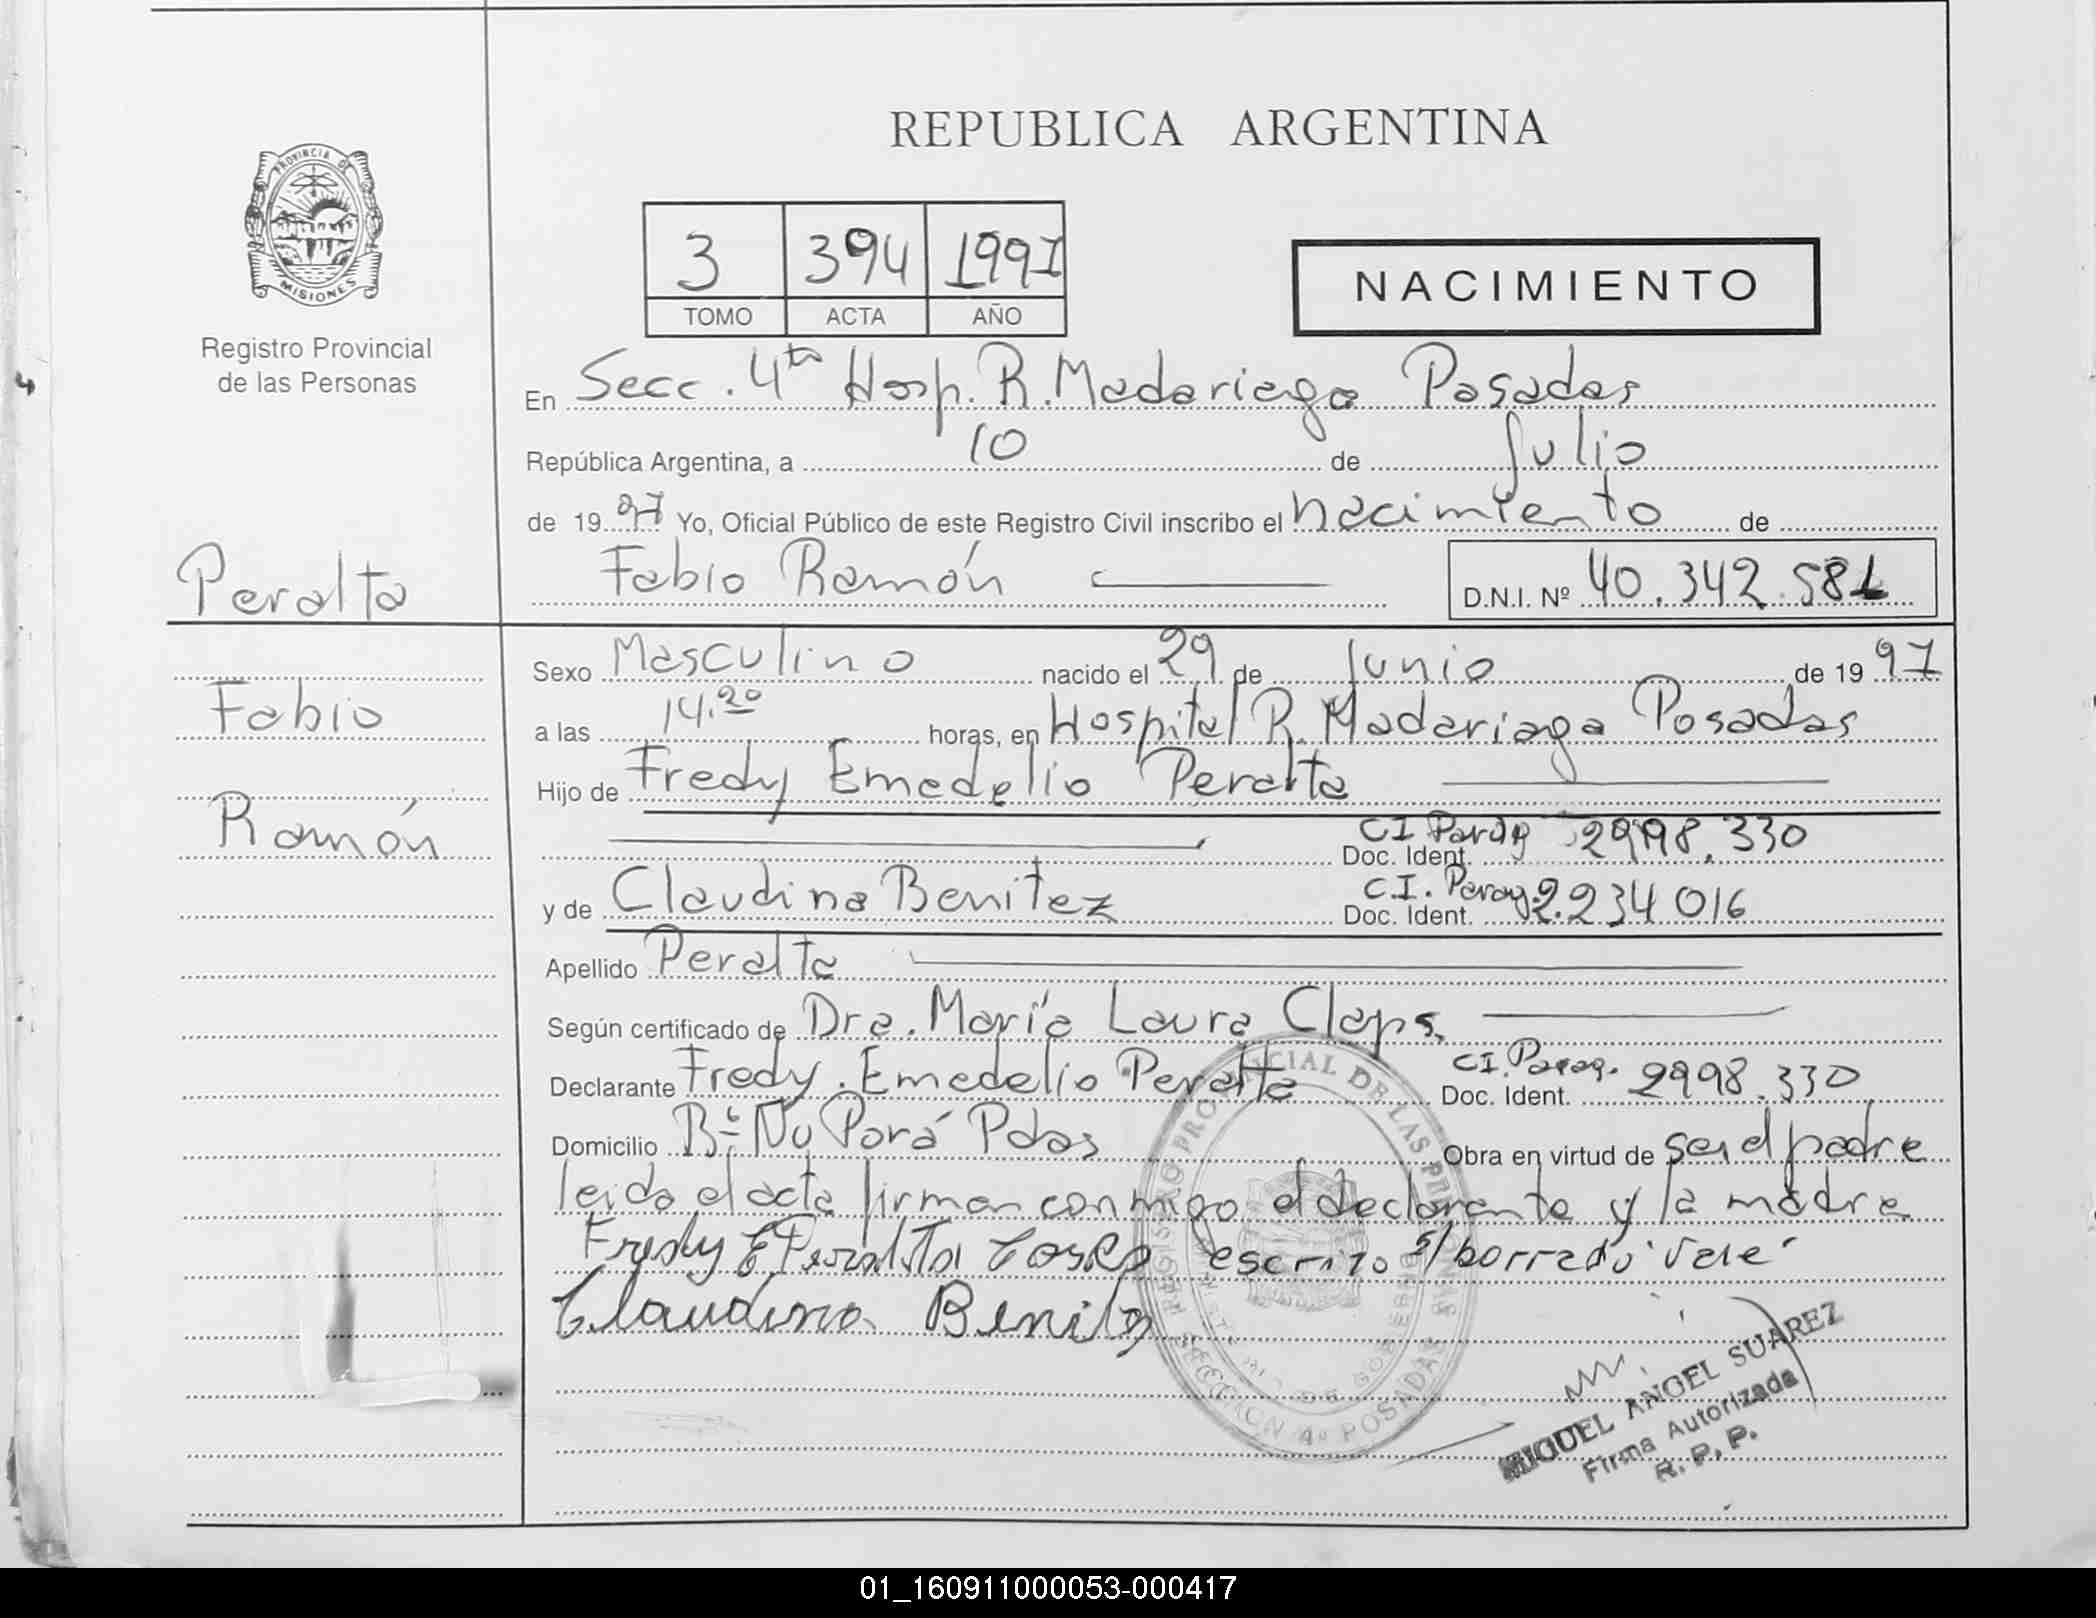 REPUBLICA ARGENTINA
PROVINCIA DE
MISIONES
Registro Provincial
de las Personas
3 394 1997
TOMO ACTA AÑO
NACIMIENTO
En Secc. 4ta Hosp. R. Madariaga Posadas
República Argentina, a 10 de Julio
de 19 97 Yo, Oficial Público de este Registro Civil inscribo el nacimiento de
Peralta
Fabio Ramón
D.N.I. Nº 40.342.581
Sexo Masculino nacido el 29 de Junio de 19 97
Fabio
a las 14.20 horas, en Hospital R. Madariaga Posadas
Hijo de Fredy Emedelio Peralta
Ramón
CI Parag 2998.330
Doc. Ident.
y de Claudina Benitez
CI. Parag. 2.234016
Doc. Ident.
Apellido Peralta
Según certificado de Dra. María Laura Claps.
Declarante Fredy. Emedelio Peralta CI. Parag. 2998.330
Doc. Ident.
Domicilio Bº Ñu Porá Pdas Obra en virtud de ser el padre
leida el acta firman conmigo el declarante y la madre
Fredy E Peralta escrito s/ borrado "vale"
Claudina Benitez
REGISTRO PROVINCIAL DE LAS PERSONAS
SECCION 4º POSADAS
MIGUEL ANGEL SUAREZ
Firma Autorizada
R. P. P.
01_160911000053-000417